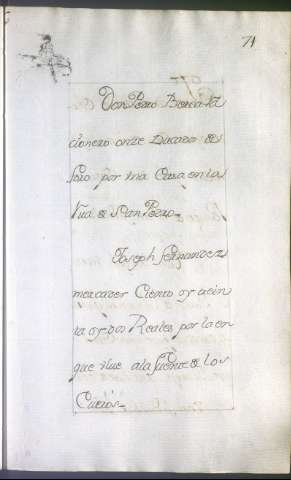 71
Don Pedro Borca Ra
cionero onze Ducados de
foro por una Casa en la
Rua de San Pedro
Joseph fernandez
mercader Ciento y vein
ta y dos Reales por la en
que vive a la fuente de los